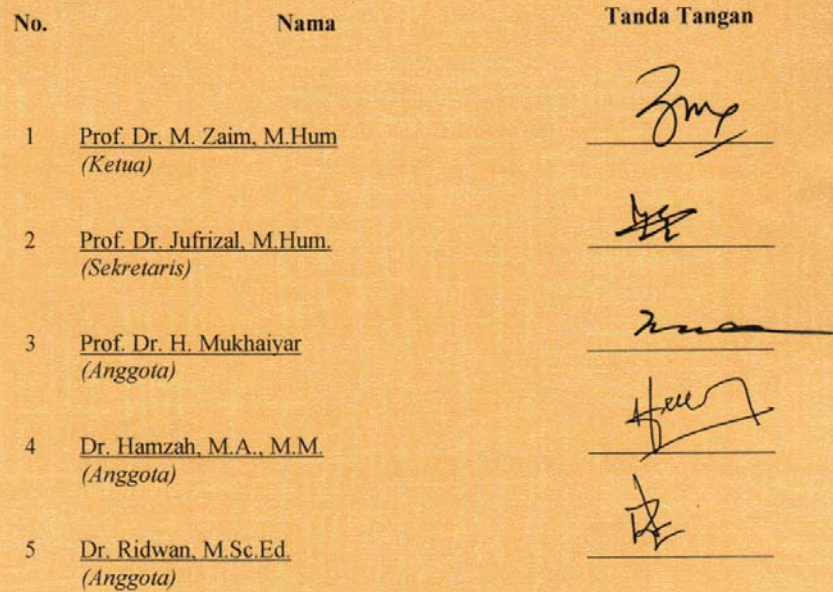 No. Nama Tanda Tangan
1 Prof. Dr. M. Zaim, M.Hum
(Ketua)
2 Prof. Dr. Jufrizal, M.Hum.
(Sekretaris)
3 Prof. Dr. H. Mukhaiyar
(Anggota)
4 Dr. Hamzah, M.A., M.M.
(Anggota)
5 Dr. Ridwan, M.Sc.Ed.
(Anggota)